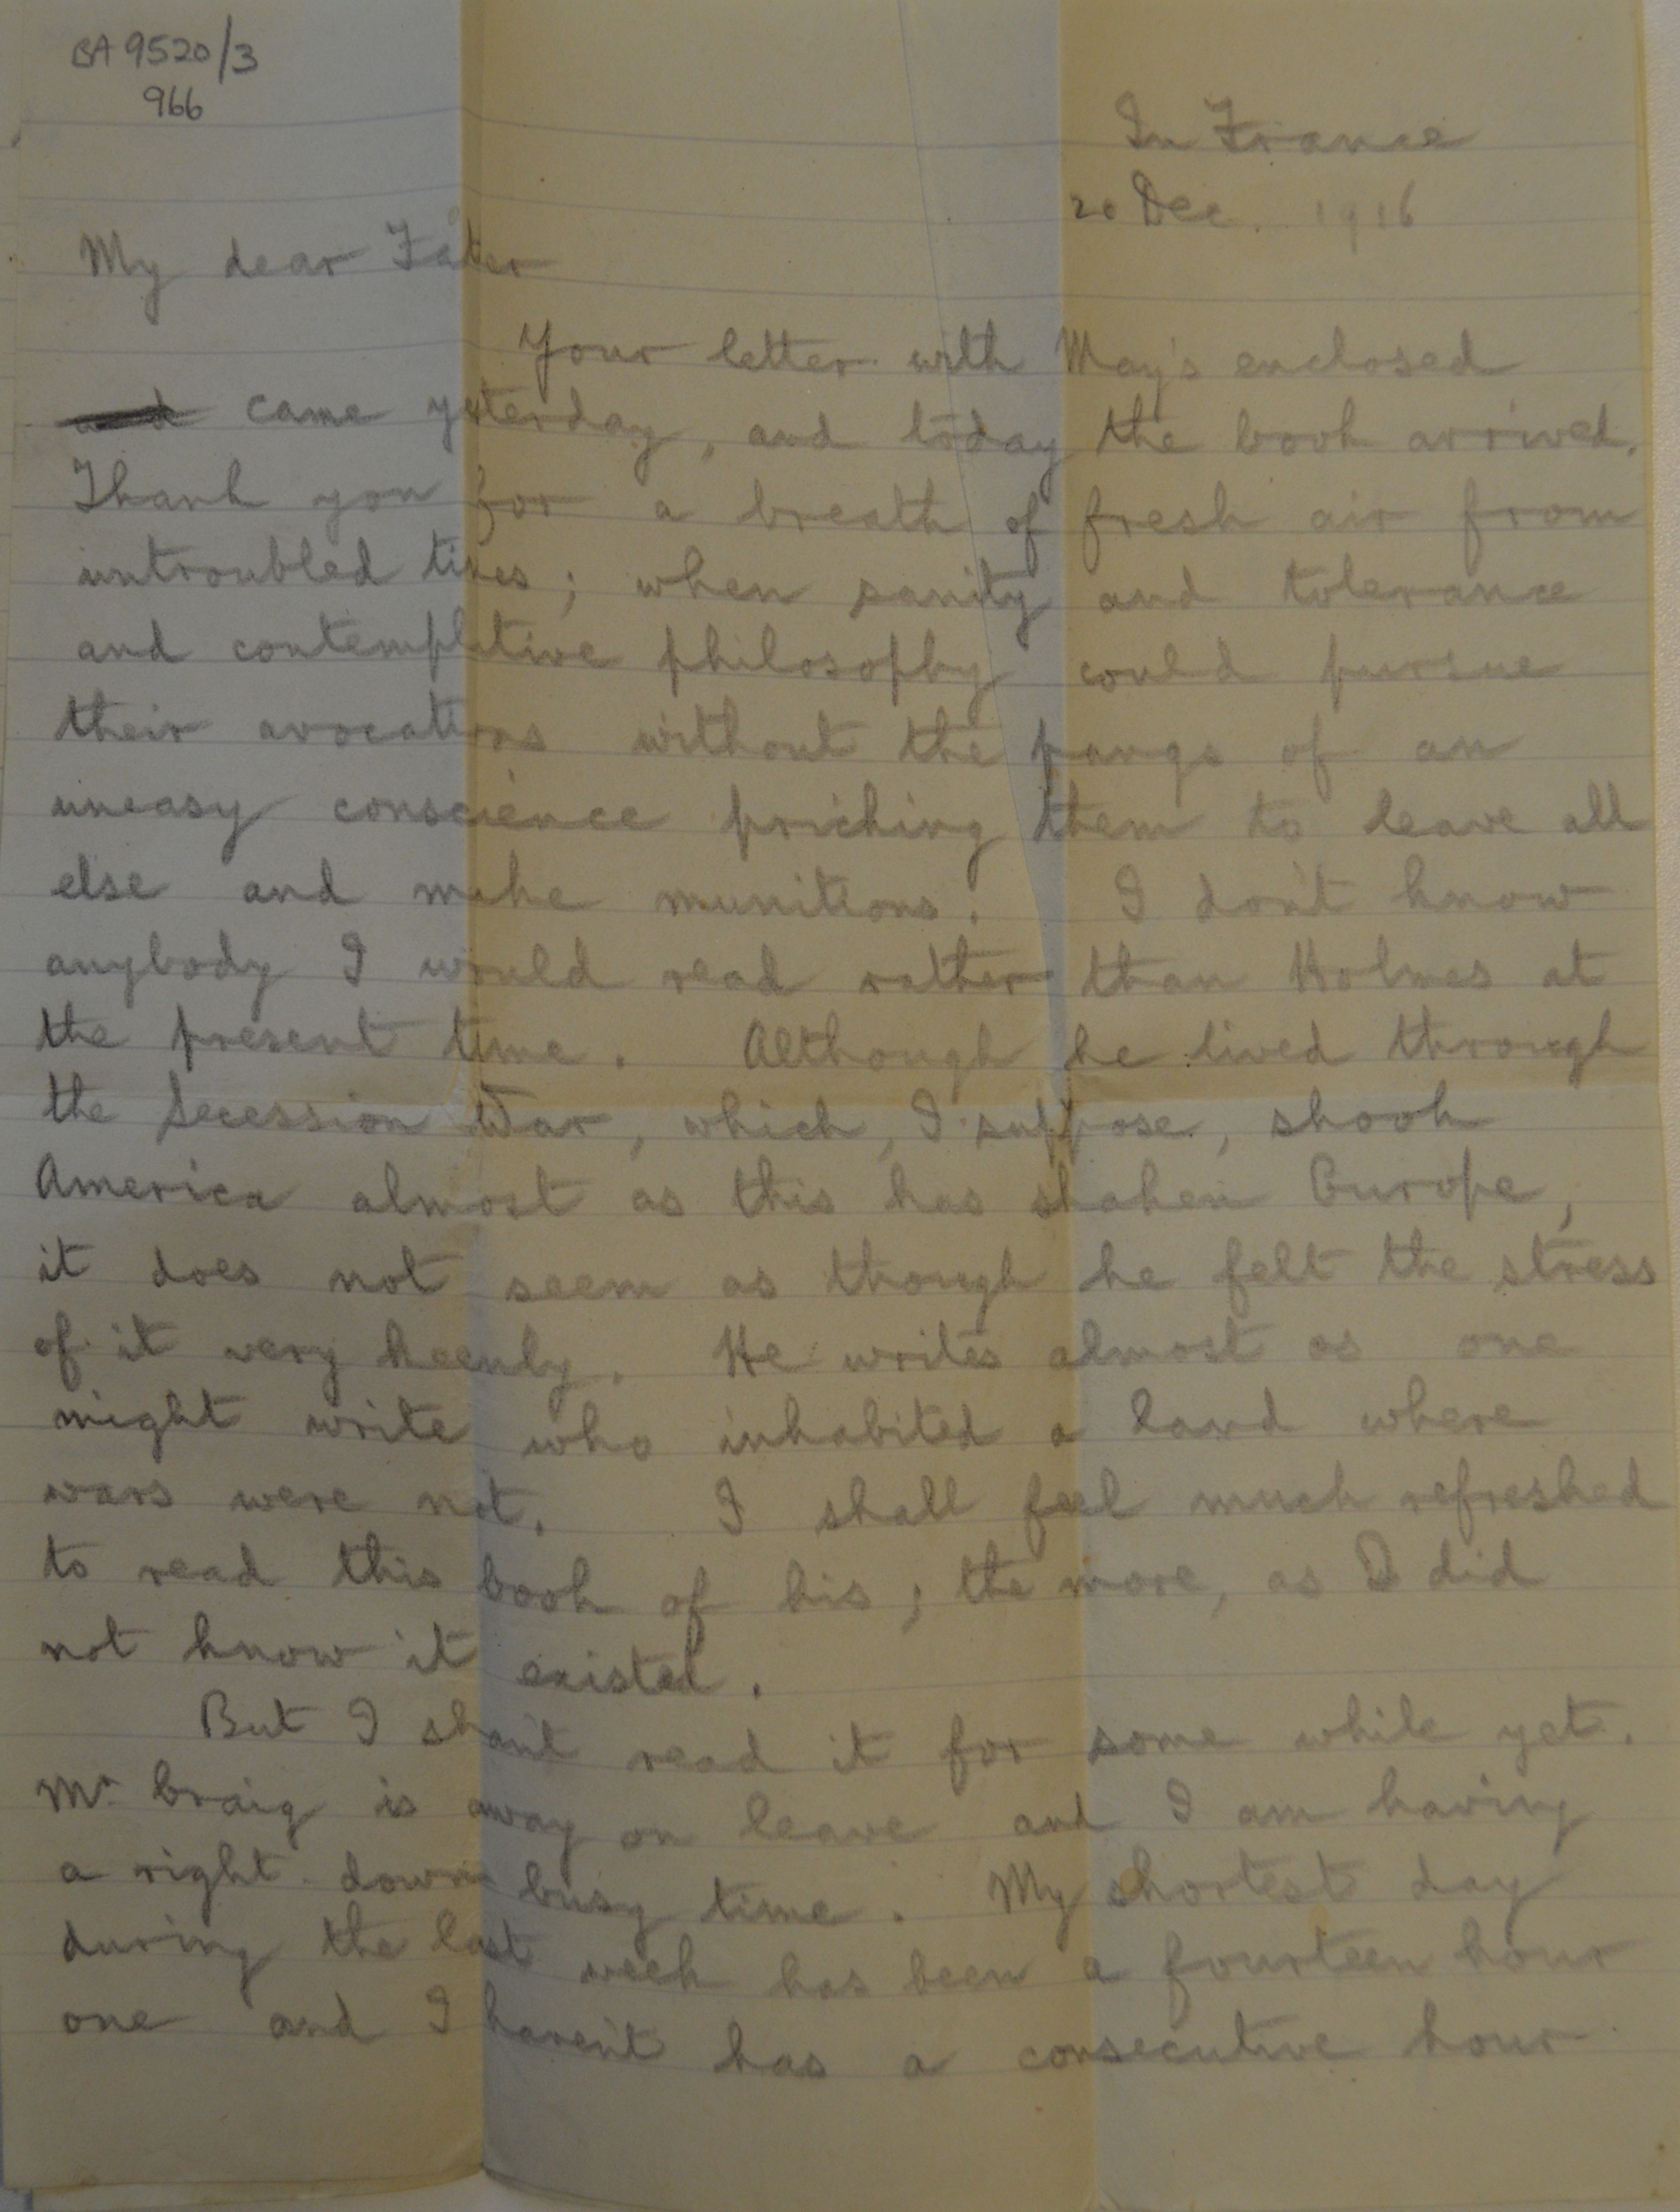 BA 9520/3
966
In France
20 Dec. 1916
My dear Father
Your letter with May's enclosed
and came yesterday, and today the book arrived.
Thank you for a breath of fresh air from
untroubled times; when sanity and tolerance
and contemplative philosophy could pursue
their avocations without the pangs of an
uneasy conscience pricking them to leave all
else and make munitions. I don't know
anybody I would read rather than Holmes at
the present time. Although he lived through
the Secession War, which, I suppose, shook
America almost as this has shaken Europe,
it does not seem as though he felt the stress
of it very keenly. He writes almost as one
might write who inhabited a land where
wars were not. I shall feel much refreshed
to read this book of his; the more, as I did
not know it existed.
But I shan't read it for some while yet.
Mr Craig is away on leave and I am having
a right-down busy time. My shortest day
during the last week has been a fourteen hour
one and I haven't has a consecutive hour